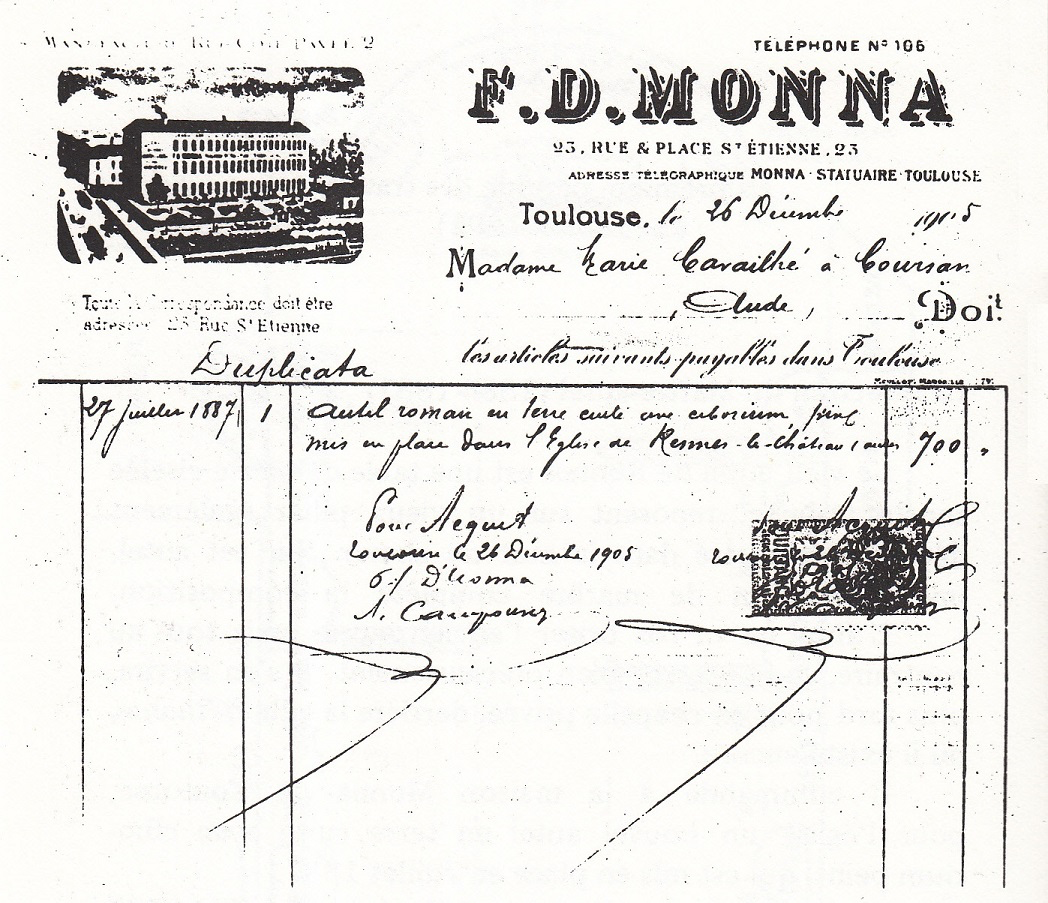 MANUFACTURE RUE CÔTE PAVÉE 2
TÉLÉPHONE Nº 106
F.D.MONNA
23, RUE & PLACE ST ÉTIENNE, 23
ADRESSE TÉLÉGRAPHIQUE MONNA·STATUAIRE·TOULOUSE
Toulouse, le 26 Décembre 1905
Madame Marie Cavailhé à Coursan
, Aude, Doit
Toute la Correspondance doit être
adressée 23 Rue St Etienne
les articles suivants payables dans Toulouse
Duplicata
27 juillet 1887 1 autel roman en terre cuite avec ciborium,
mis en place dans l'Eglise de Rennes-le-Château (Aude) 700 "
Pour Acquit
Toulouse le 26 Décembre 1905
D Monna